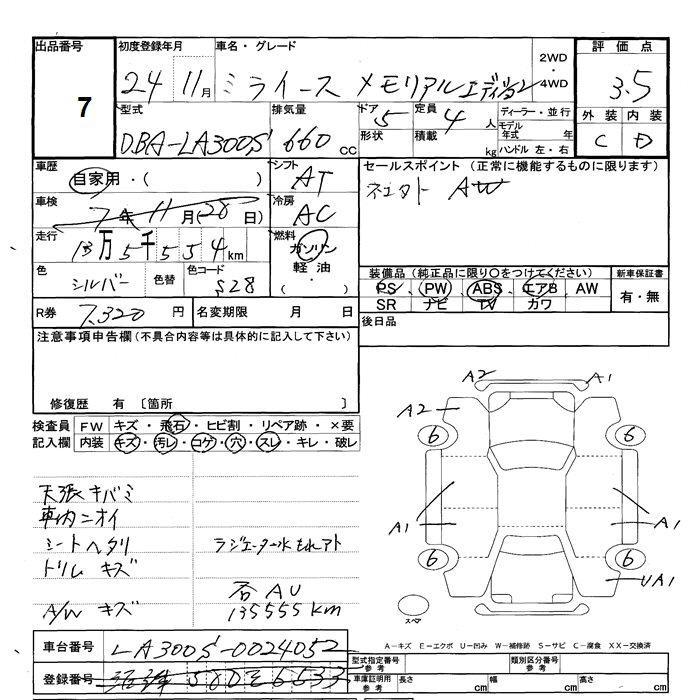 出品番号
7
初度登録年月
24 11月
車名・グレード
ミライース メモリアルエディション
2WD
・
4WD
評価点
3.5
外装 内装
C D
型式
DBA-LA300S
排気量
660 cc
ドア
5
形状
定員
4 人
積載
kg
ディーラー・並行
モデル
年式 年
ハンドル 左・右
車歴
自家用・( )
シフト
AT
車検
7年 11月(28日)
冷房
AC
走行
13万5千554km
燃料
ガソリン
軽油
( ・ )
色
シルバー
色替
色コード
S28
R券 7,320 円
名変期限 月 日
セールスポイント (正常に機能するものに限ります)
AW
装備品(純正品に限り○をつけてください)
PS、PW、ABS、エアB、AW
SR ナビ TV カワ
新車保証書
有・無
後日品
注意事項申告欄(不具合内容等は具体的に記入して下さい)
修復歴 有 〔箇所 〕
検査員
記入欄
FW キズ・飛石・ヒビ割・リペア跡・×要
内装 キズ・汚レ・コゲ・穴・スレ・キレ・破レ
天張キバミ
車内ニオイ
シートヘタリ
ラジエーター水もれアト
トリム キズ
A/W キズ
否 AU
135555km
A2 A1
A2
6 6
A1 A1
6 6
UA1
スペア
A-キズ E-エクボ U-凹み W-補修跡 S-サビ C-腐食 XX-交換済
車台番号 LA300S-0024052
登録番号
型式指定番号
参考
類別区分番号
参考
車庫証明用
参考
長さ cm
幅 cm
高さ cm